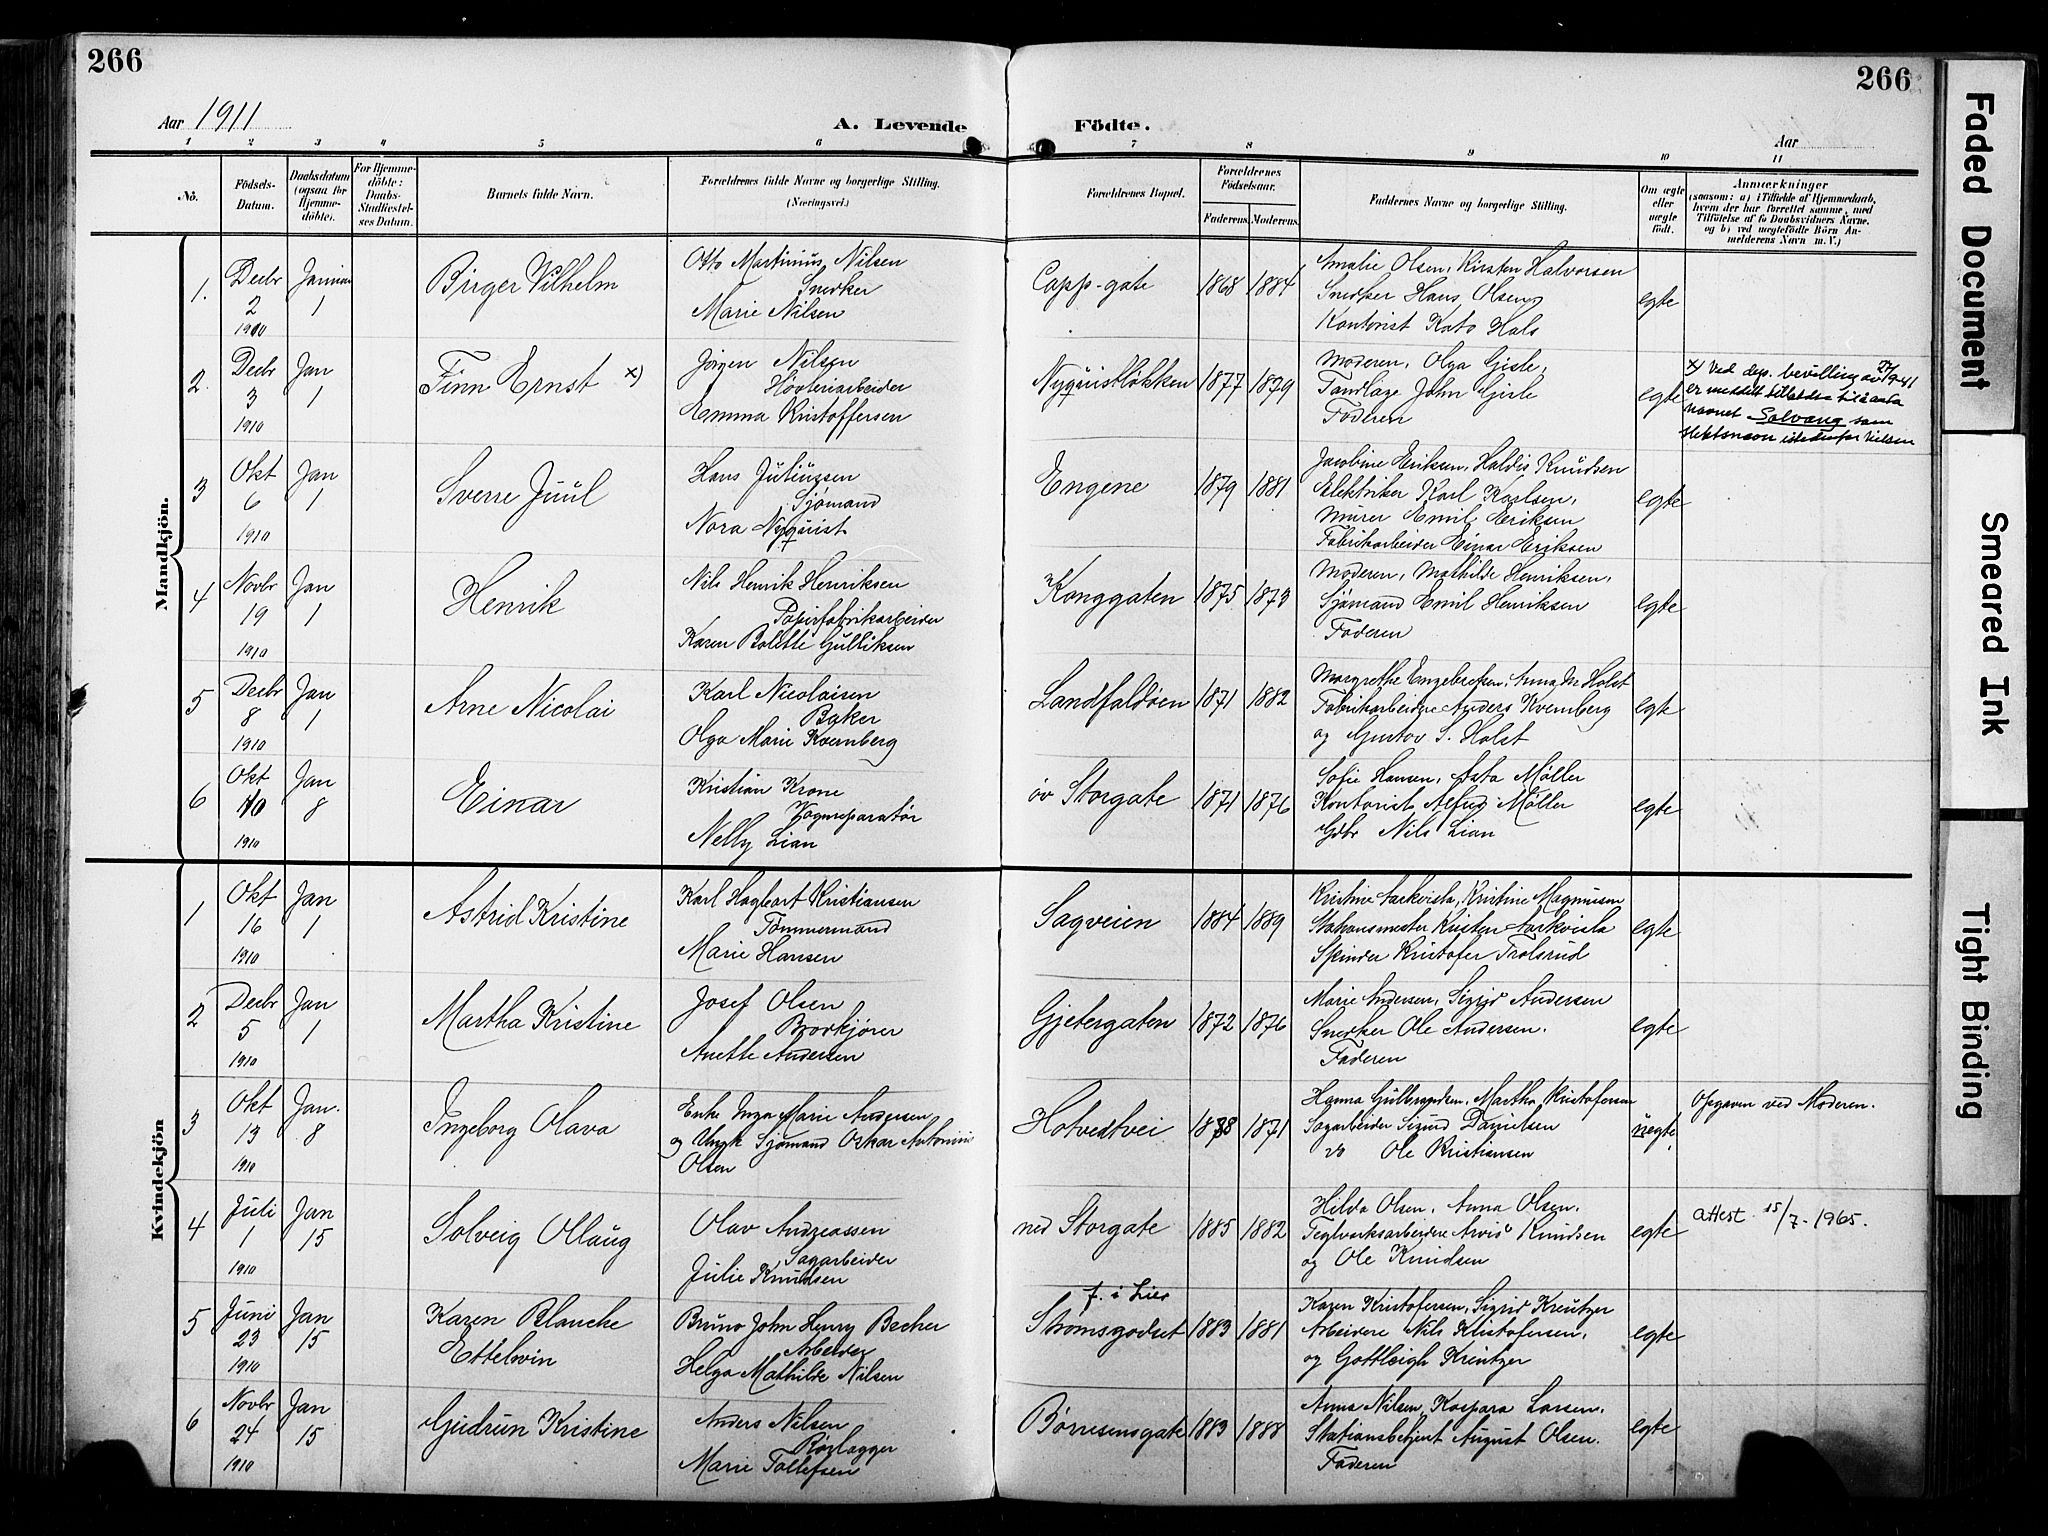 266
266
Aar 1911
A. Levende
Födte.
Aar
1 2 3 4 5 6 7 8 9 10 11
No.
Födsels-Datum.
Daabsdatum (ogsaa for Hjemmedöbte).
For Hjemmedöbte: Daabs-Stadfæstelses Datum.
Barnets fulde Navn.
Forældrenes fulde Navne og borgerlige Stilling. (Næringsvei.)
Forældrenes Bopæl.
Forældrenes Födselsaar.
Faderens. Moderens.
Faddernes Navne og borgerlige Stilling.
Om ægte eller uægte födt.
Anmærkninger
(saasom: a) i Tilfælde af Hjemmedaab,
hvem der har forrettet samme, med
Tilföielse af to Daabsvidners Navne.
og b) ved uægtefödte Börn An-
melderens Navn m. V.)
Mandkjön.
1. Decbr 2 1910
Januar 1
Birger Vilhelm
Otto Martinius Nilsen
Snedker
Marie Nilsen
Capp-gate
1868 1884
Amalie Olsen, Kirsten Halvorsen
Snedker Hans Olsen,
Kontorist Kato Hals
egte
2. Decbr 3 1910
Jan 1
Finn Ernst x)
Jörgen Nilsen
Høvleriarbeider
Emma Kristoffersen
Nyquistløkken
1877 1879
Moderen, Olga Gisle,
Tandlæge John Gisle
Faderen
egte
x) Ved dep. bevilling av 1941
er meddelt tilladelse til å anta
navnet Solvang som
slektsnavn istedenfor Nilsen
3 Okt 6 1910
Jan 1
Sverre Juul
Hans Juliussen
Sjømand
Nora Nyquist
Engene
1879 1881
Jacobine Eriksen, Haldis Knudsen
Elektriker Karl Karlsen,
Murer Emil Eriksen
Fabrikarbeider Einar Eriksen
egte
4 Novbr 19 1910
Jan 1
Henrik
Nils Henrik Henriksen
Papirfabrikarbeider
Karen Bolette Gulliksen
Konggaten
1875 1873
Moderen, Mathilde Henriksen,
Sjømand Emil Henriksen
Faderen
egte
5 Decbr 8 1910
Jan 1
Arne Nicolai
Karl Nicolaisen
Baker
Olga Marie Kvernberg
Landfaldøen
1871 1882
Margrethe Engebretsen, Anna M Holst
Fabrikarbeidere Anders Kvernberg
og Gustav S. Holst
egte
6 Okt 10 1910
Jan 8
Einar
Kristian Krone
Vognreparatør
Nelly Lian
öv Storgate
1871 1876
Sofie Hansen, Asta Møller
Kontorist Alfred Møller
Gdbr Nils Lian
egte
Kvindekjön
1 Okt 16 1910
Jan 1
Astrid Kristine
Karl Hagbart Kristiansen
Tömmermand
Marie Hansen
Sagveien
1884 1889
Kristine Aarkvisla, Kristine Magnussen
Stationsmester Kristen Aarkvisla
Spinder Kristofer Trolsrud
egte
2 Decbr 5 1910
Jan 1
Martha Kristine
Josef Olsen
Bordkjører
Anette Andersen
Gjetergaten
1872 1876
Marie Andersen, Sigrid Andersen
Snedker Ole Andersen.
Faderen
egte
3 Okt 13 1910
Jan. 8
Ingeborg Olava
Enke Inga Marie Andersen,
og Ungk Sjømand Oskar Antonius
Olsen
Hotvedtvei
1888 1871
Hanna Gulbrandsen, Martha Kristofersen
Sagarbeider Sigurd Danielsen
do Ole Kristiansen
uegte.
Opgaven ved Moderen.
4 Juli 1 1910
Jan 15
Solveig Ollaug
Olav Andreassen
Sagarbeider
Julie Knudsen
ned Storgate
1885 1882
Hilda Olsen, Anna Olsen,
Teglverksarbeidere Arvid Knudsen
og Ole Knudsen
egte
attest 15/7-1965.
5 Juni 23 1910
Jan 15
Karen Blanche
Ettelvin
Bruno John Henry Becher
Arbeider
Helga Mathilde Nilsen
f. i Lier
Strömsgodset
1883 1881
Karen Kristofersen, Sigrid Kreutzer
Arbeidere Nils Kristofersen,
og Gottleigh Kreutzer
egte
6 Novbr 24 1910
Jan 15
Gudrun Kristine
Anders Nilsen
Rørlægger
Marie Tollefsen
Børresensgate
1883 1888
Anna Nilsen, Kaspara Larsen,
Stationsbetjent August Olsen.
Faderen
egte
Faded Document
Smeared Ink
Tight Binding